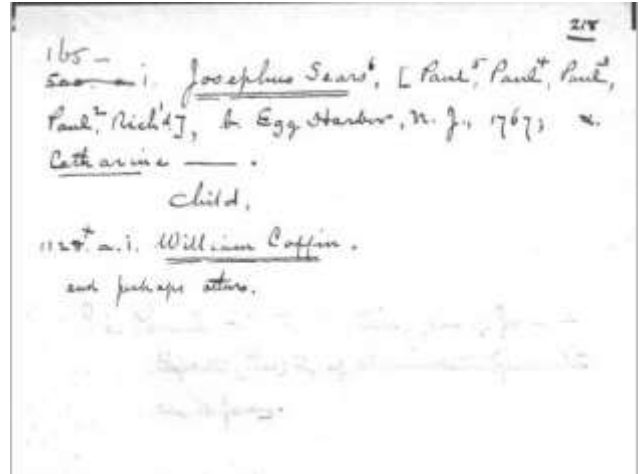 218
165 –
500. a i. Josephus Sears⁶, [Paul⁵, Paul⁴, Paul³,
Paul², Rich'd], b. Egg Harbor, N. J., 1767; m.
Catharine —— .
Child,
1128⁺ a. i. William Coffin.
and perhaps others.